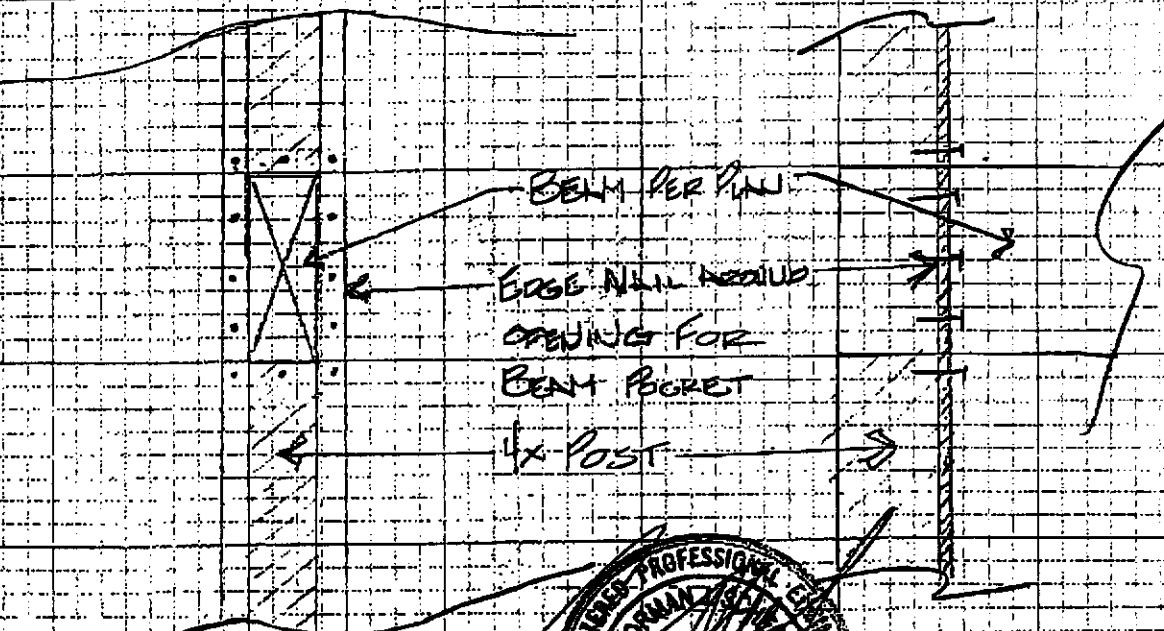 BEAM PER PLAN
EDGE NAIL AROUND
OPENING FOR
BEAM POCKET
4X POST
PROFESSIONAL